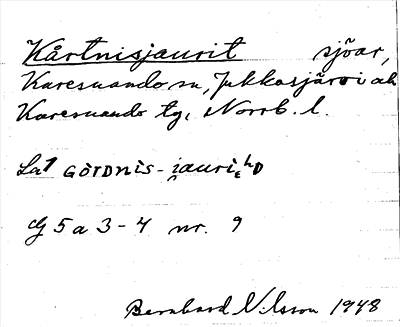 Kårtnisjaurit sjöar,
Karesuando sn, Jukkasjärvi och
Karesuando tg, Norrb. l.
Lat GÖTDNIS-jauri
G 5 a 3-4 nr. 9
Bernhard Nilsson 1948